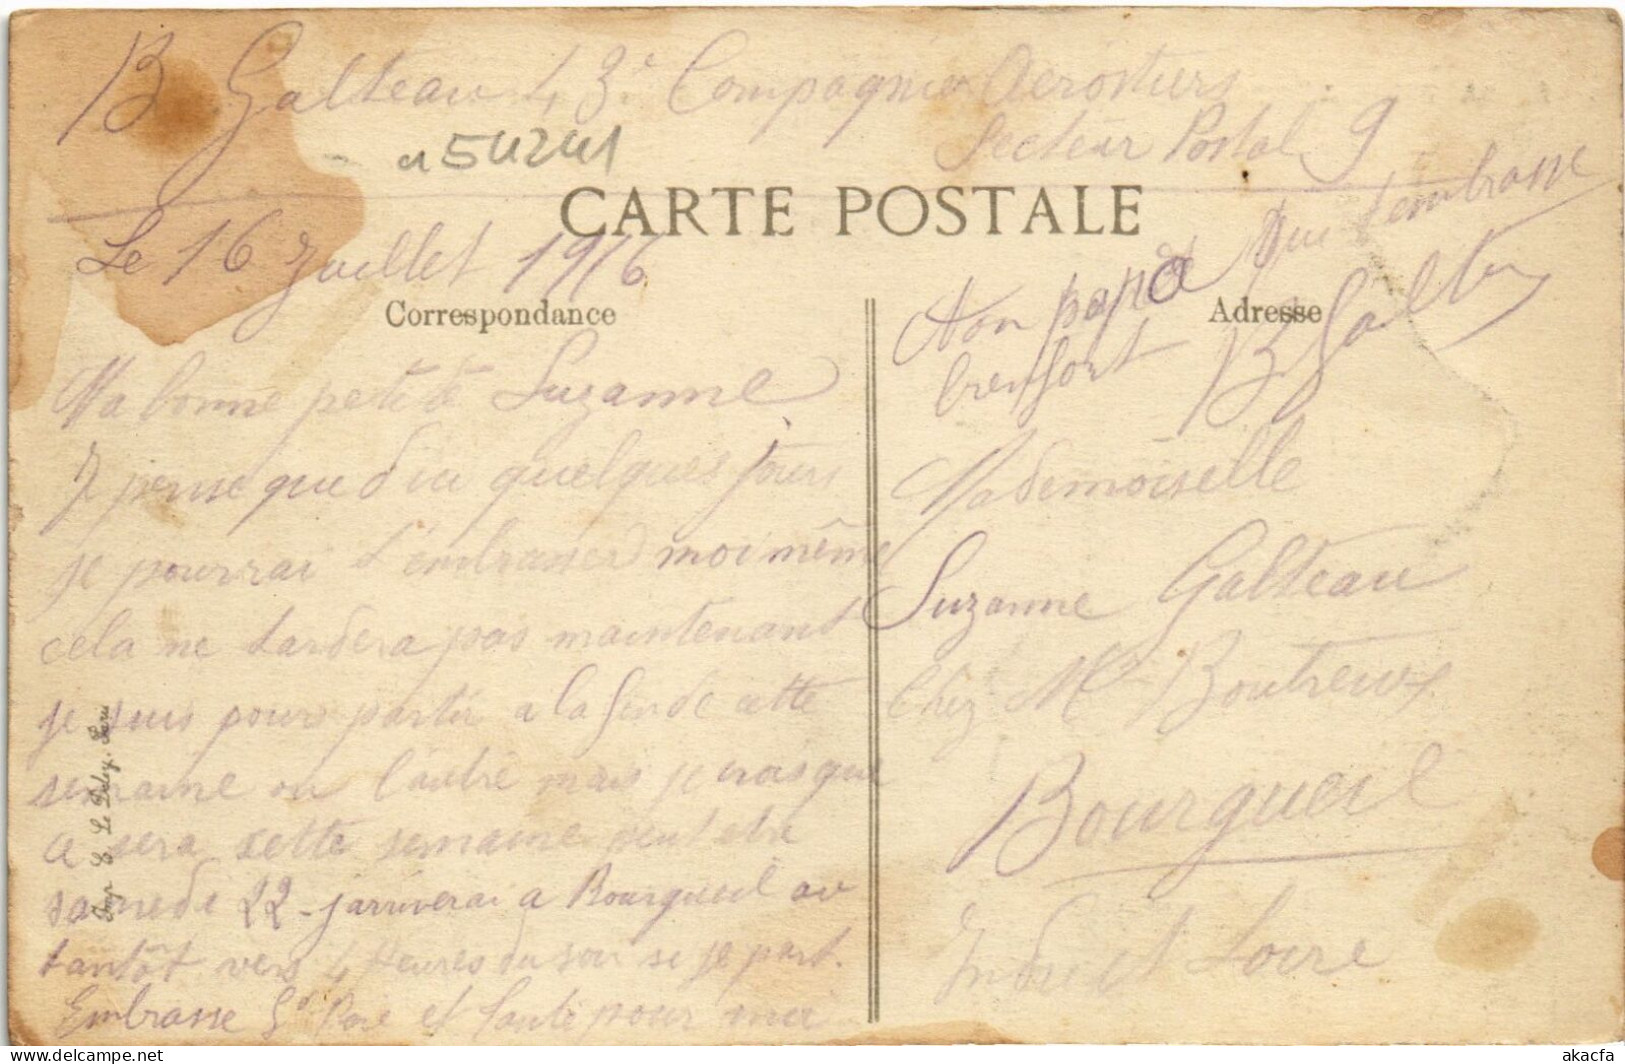 B Galteau 43e Compagnie Aerostiers
Secteur Postal 9
a 54241
CARTE POSTALE
Le 16 Juillet 1916
Correspondance
Ma bonne petite Suzanne
Je pense que d'ici quelques jours
je pourrai t'embrasser moi même
cela ne tardera pas maintenant
je suis pour partir a la fin de cette
semaine ou l'autre mais je crois que
ce sera cette semaine peut etre
samedi 22 - j'arriverai a Bourgueil au
tantôt vers 4 Heures du soir si je part.
Embrasse Gd Père et tante pour moi
Ton papa qui t'embrasse
bien fort
B Galteau
Adresse
Mademoiselle
Suzanne Galteau
Chez Mr Boutreux
Bourgueil
Indre et Loire
Imp. E. Le Deley, Paris
akacfa